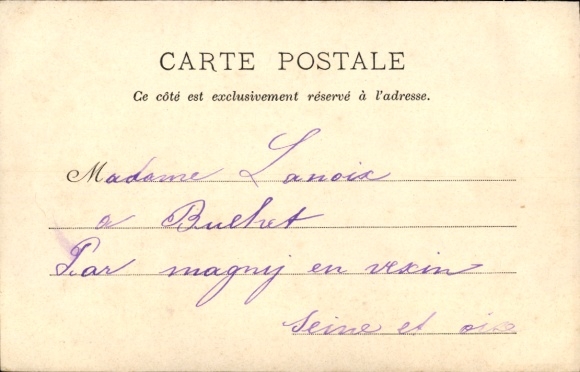 CARTE POSTALE
Ce côté est exclusivement réservé à l'adresse.
Madame Lanoix
a Bulhet
Par magny en vexin
seine et oise